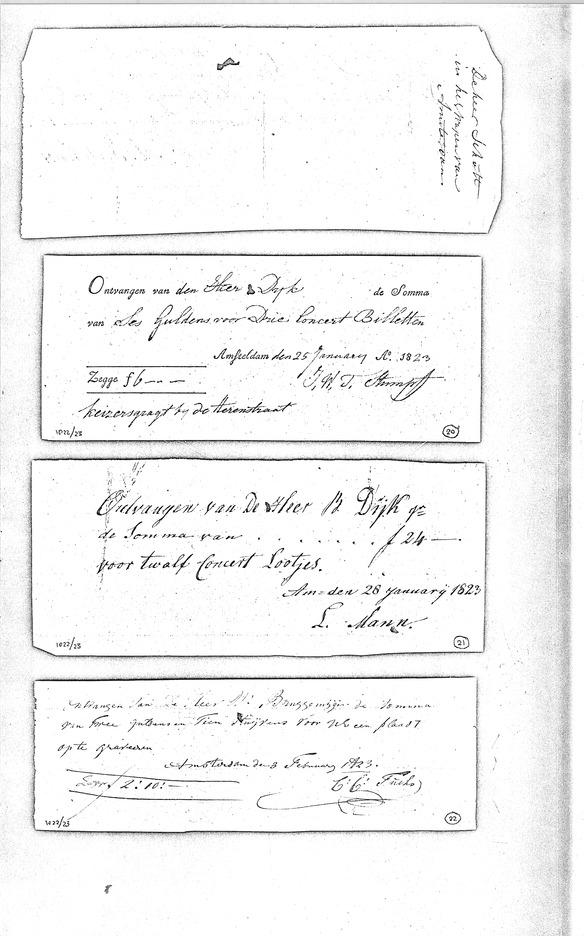 De heer Schott
in het wapen van
Amsterdam
Ontvangen van den Heer Dyk de Somma
van Ses Guldens voor Drie Concert Billetten
Amsteldam den 25 January Ao. 1823
Zegge f 6 — — J. W. T. Stumpff
keizersgragt by de Herenstraat
1022/23 20
Ontvangen van De Heer B. Dijk
de Somma van . . . . . . . f 24 —
voor twalf Concert Lootjes.
Am=den 28 January 1823
L. Mann.
1022/23 21
ontvangen van de Heer Bruggemeijer de Somma
van twee guldens en Tien stuijvers voor een plaadt
op te graveeren
Amsterdam den 3 February 1823.
Zegge f 2:10:— C. C. Fuchs
1022/23 22